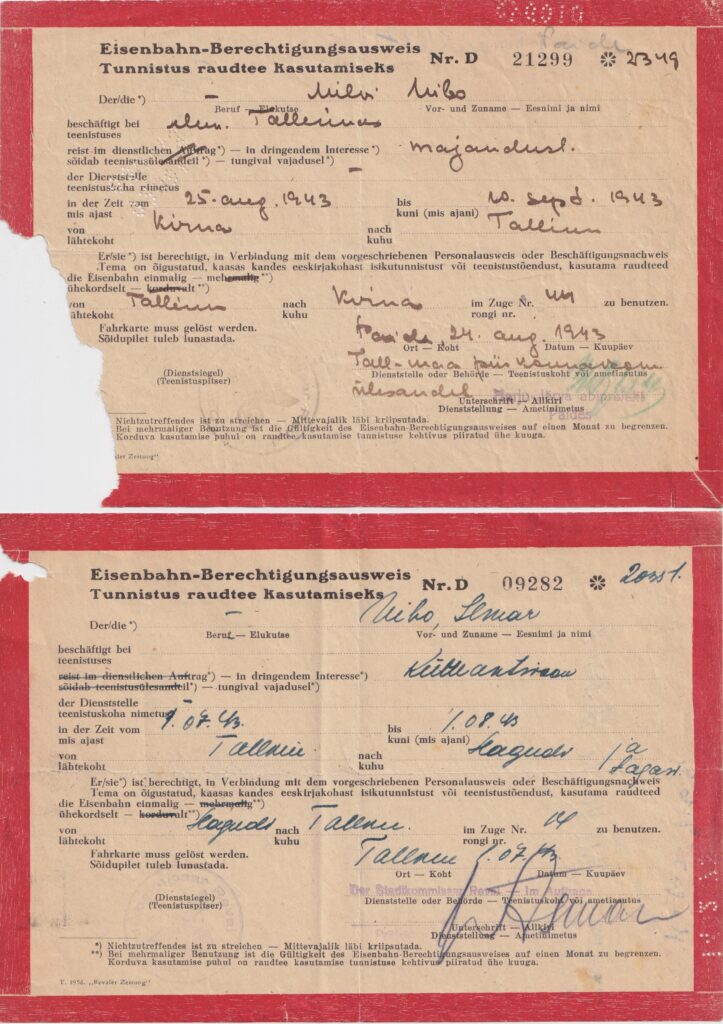 Eisenbahn-Berechtigungsausweis
Tunnistus raudtee kasutamiseks
Nr. D 21299 ❇ 2349
Der/die *) – Milvi Nibo
Beruf — Elukutse Vor- und Zuname — Eesnimi ja nimi
beschäftigt bei
teenistuses Tallinnas
reist im dienstlichen Auftrag*) — in dringendem Interesse*) majandusl.
sõidab teenistusülesandeil*) — tungival vajadusel*)
der Dienststelle –
teenistuskoha nimetus
in der Zeit vom 25. aug. 1943 bis 10. sept. 1943
mis ajast kuni (mis ajani)
von nach Tallinn
lähtekoht kuhu
Er/sie*) ist berechtigt, in Verbindung mit dem vorgeschriebenen Personalausweis oder Beschäftigungsnachweis
Tema on õigustatud, kaasas kandes eeskirjakohast isikutunnistust või teenistustõendust, kasutama raudteed
die Eisenbahn einmalig — mehrmalig**)
ühekordselt — korduvalt**)
von Tallinn nach im Zuge Nr. zu benutzen.
lähtekoht kuhu rongi nr.
Fahrkarte muss gelöst werden. Paide, 24. aug. 1943
Sõidupilet tuleb lunastada. Ort — Koht Datum — Kuupäev
(Dienstsiegel)
(Teenistuspitser) Dienststelle oder Behörde — Teenistuskoht või ametiasutus
ülesandel
Unterschrift — Allkiri
Paides
Dienststellung — Ametinimetus
Nichtzutreffendes ist zu streichen — Mittevajalik läbi kriipsutada.
Bei mehrmaliger Benutzung ist die Gültigkeit des Eisenbahn-Berechtigungsausweises auf einen Monat zu begrenzen.
Korduva kasutamise puhul on raudtee kasutamise tunnistuse kehtivus piiratud ühe kuuga.
Zeitung"
Eisenbahn-Berechtigungsausweis
Tunnistus raudtee kasutamiseks
Nr. D 09282 ❇
Der/die*) – Nibo,
Beruf — Elukutse Vor- und Zuname — Eesnimi ja nimi
beschäftigt bei
teenistuses
reist im dienstlichen Auftrag*) — in dringendem Interesse*)
sõidab teenistusülesandeil*) — tungival vajadusel*)
der Dienststelle
teenistuskoha nimetus
in der Zeit vom 1.07.43. bis 1.08.43
mis ajast kuni (mis ajani)
von Tallinn nach Hagudi
lähtekoht kuhu
Er/sie*) ist berechtigt, in Verbindung mit dem vorgeschriebenen Personalausweis oder Beschäftigungsnachweis
Tema on õigustatud, kaasas kandes eeskirjakohast isikutunnistust või teenistustõendust, kasutama raudteed
die Eisenbahn einmalig — mehrmalig**)
ühekordselt — korduvalt**)
von Hagudi nach Tallinn. im Zuge Nr. zu benutzen.
lähtekoht kuhu rongi nr.
Fahrkarte muss gelöst werden. Tallinn 1.07.43.
Sõidupilet tuleb lunastada. Ort — Koht Datum — Kuupäev
Der Stadtkommissar Reval — Im Auftrage
(Dienstsiegel) Dienststelle oder Behörde — Teenistuskoht või ametiasutus
(Teenistuspitser)
Unterschrift — Allkiri
Dienststellung — Ametinimetus
*) Nichtzutreffendes ist zu streichen — Mittevajalik läbi kriipsutada.
**) Bei mehrmaliger Benutzung ist die Gültigkeit des Eisenbahn-Berechtigungsausweises auf einen Monat zu begrenzen.
Korduva kasutamise puhul on raudtee kasutamise tunnistuse kehtivus piiratud ühe kuuga.
T. 1956. „Revaler Zeitung"